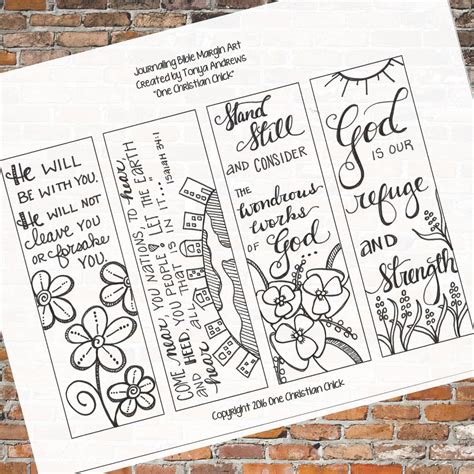 Journaling Bible Margin Art
Created by Tonya Andrews
"One Christian Chick"
He will
be with you.
He will not
leave you
or forsake
you.
Come near, you nations, to hear,
and heed, you people! Let the earth
hear and all
that is in it...
Isaiah 34:1
Stand
Still
and consider
the
wondrous
works
of God...
God
is our
refuge
and
strength
Copyright 2016 One Christian Chick